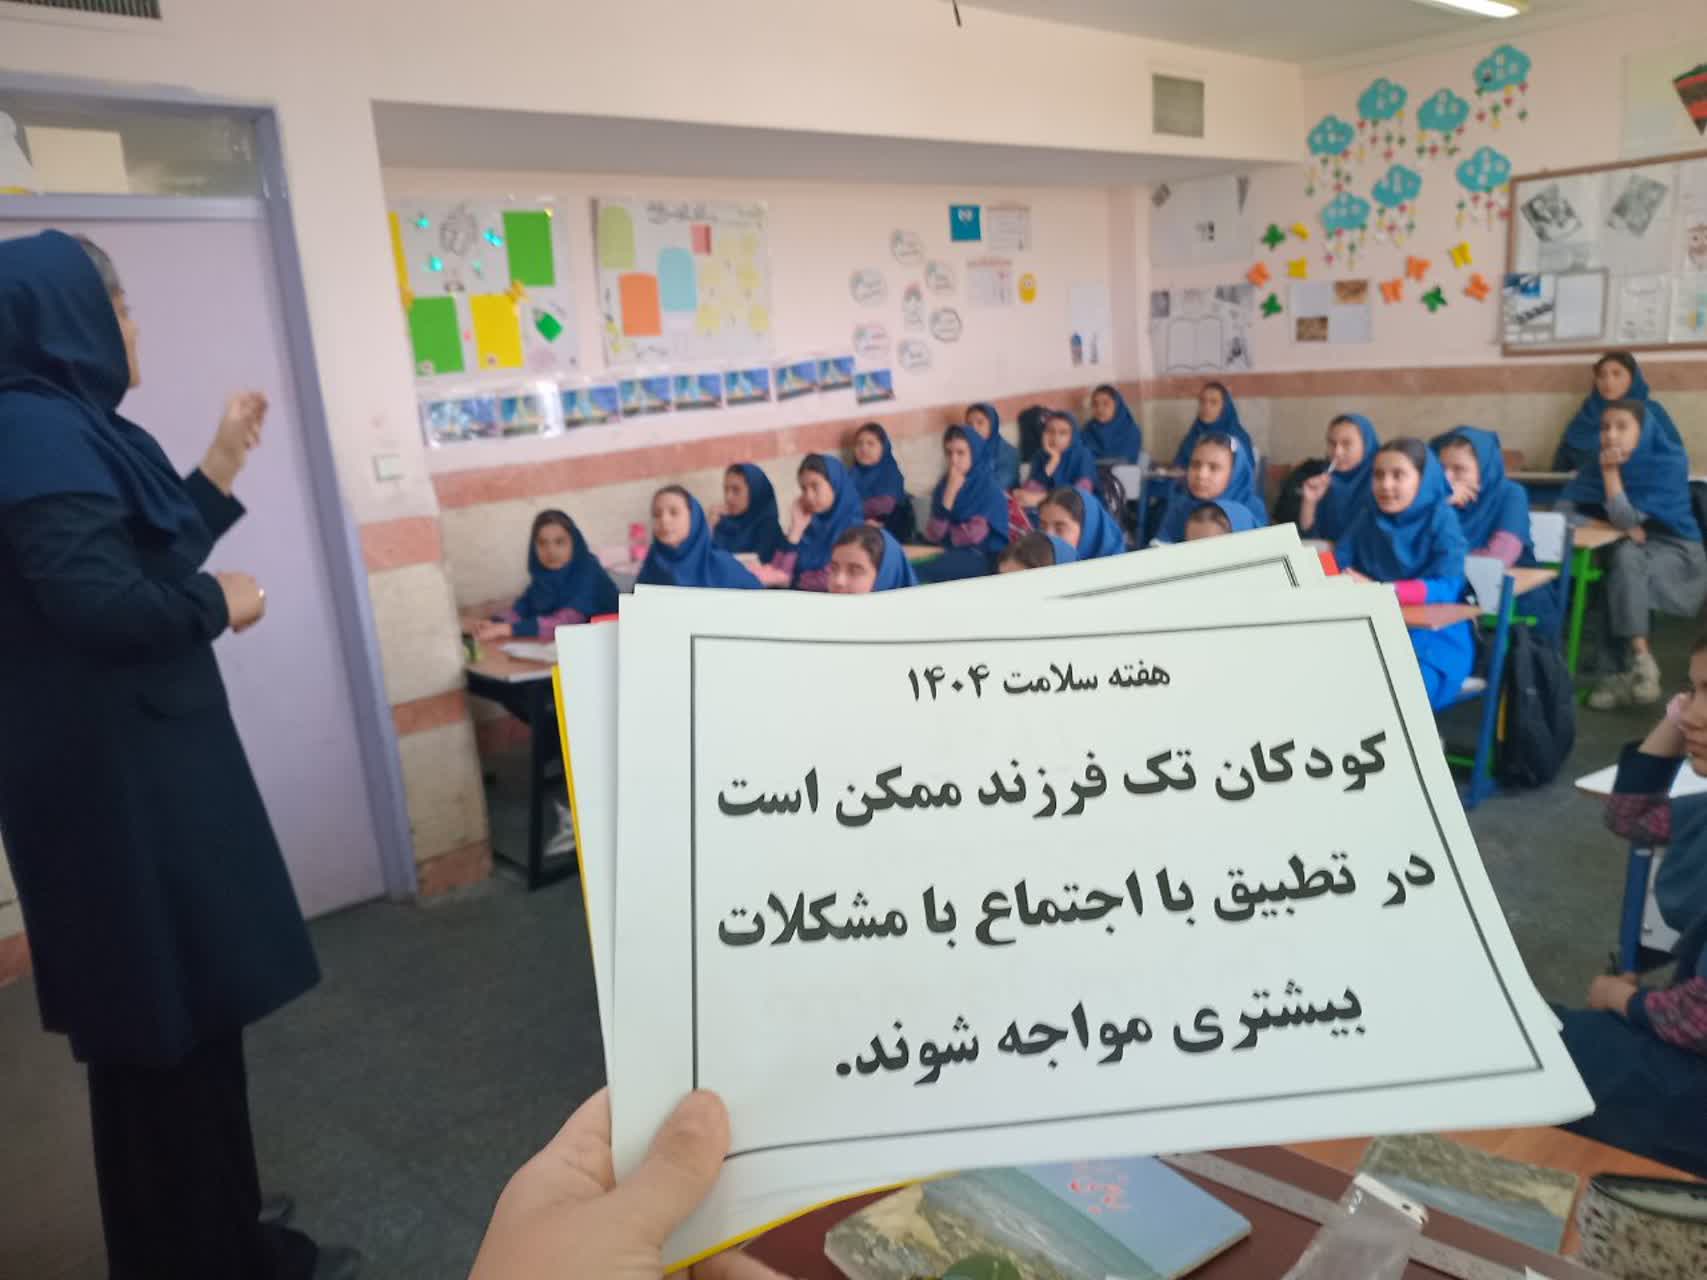 هفته سلامت ۱۴۰۴
کودکان تک فرزند ممکن است
در تطبیق با اجتماع با مشکلات
بیشتری مواجه شوند.